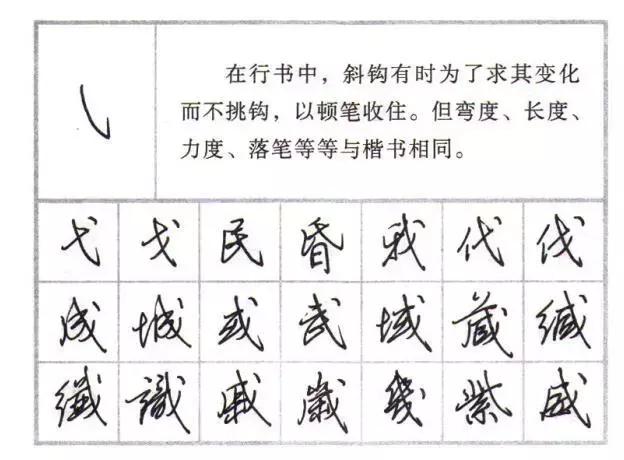 在行书中，斜钩有时为了求其变化
而不挑钩，以顿笔收住。但弯度、长度、
力度、落笔等等与楷书相同。
弋 戈 民 昏 我 代 伐
成 城 或 武 域 葳 缄
纤 識 戚 歲 幾 紫 威